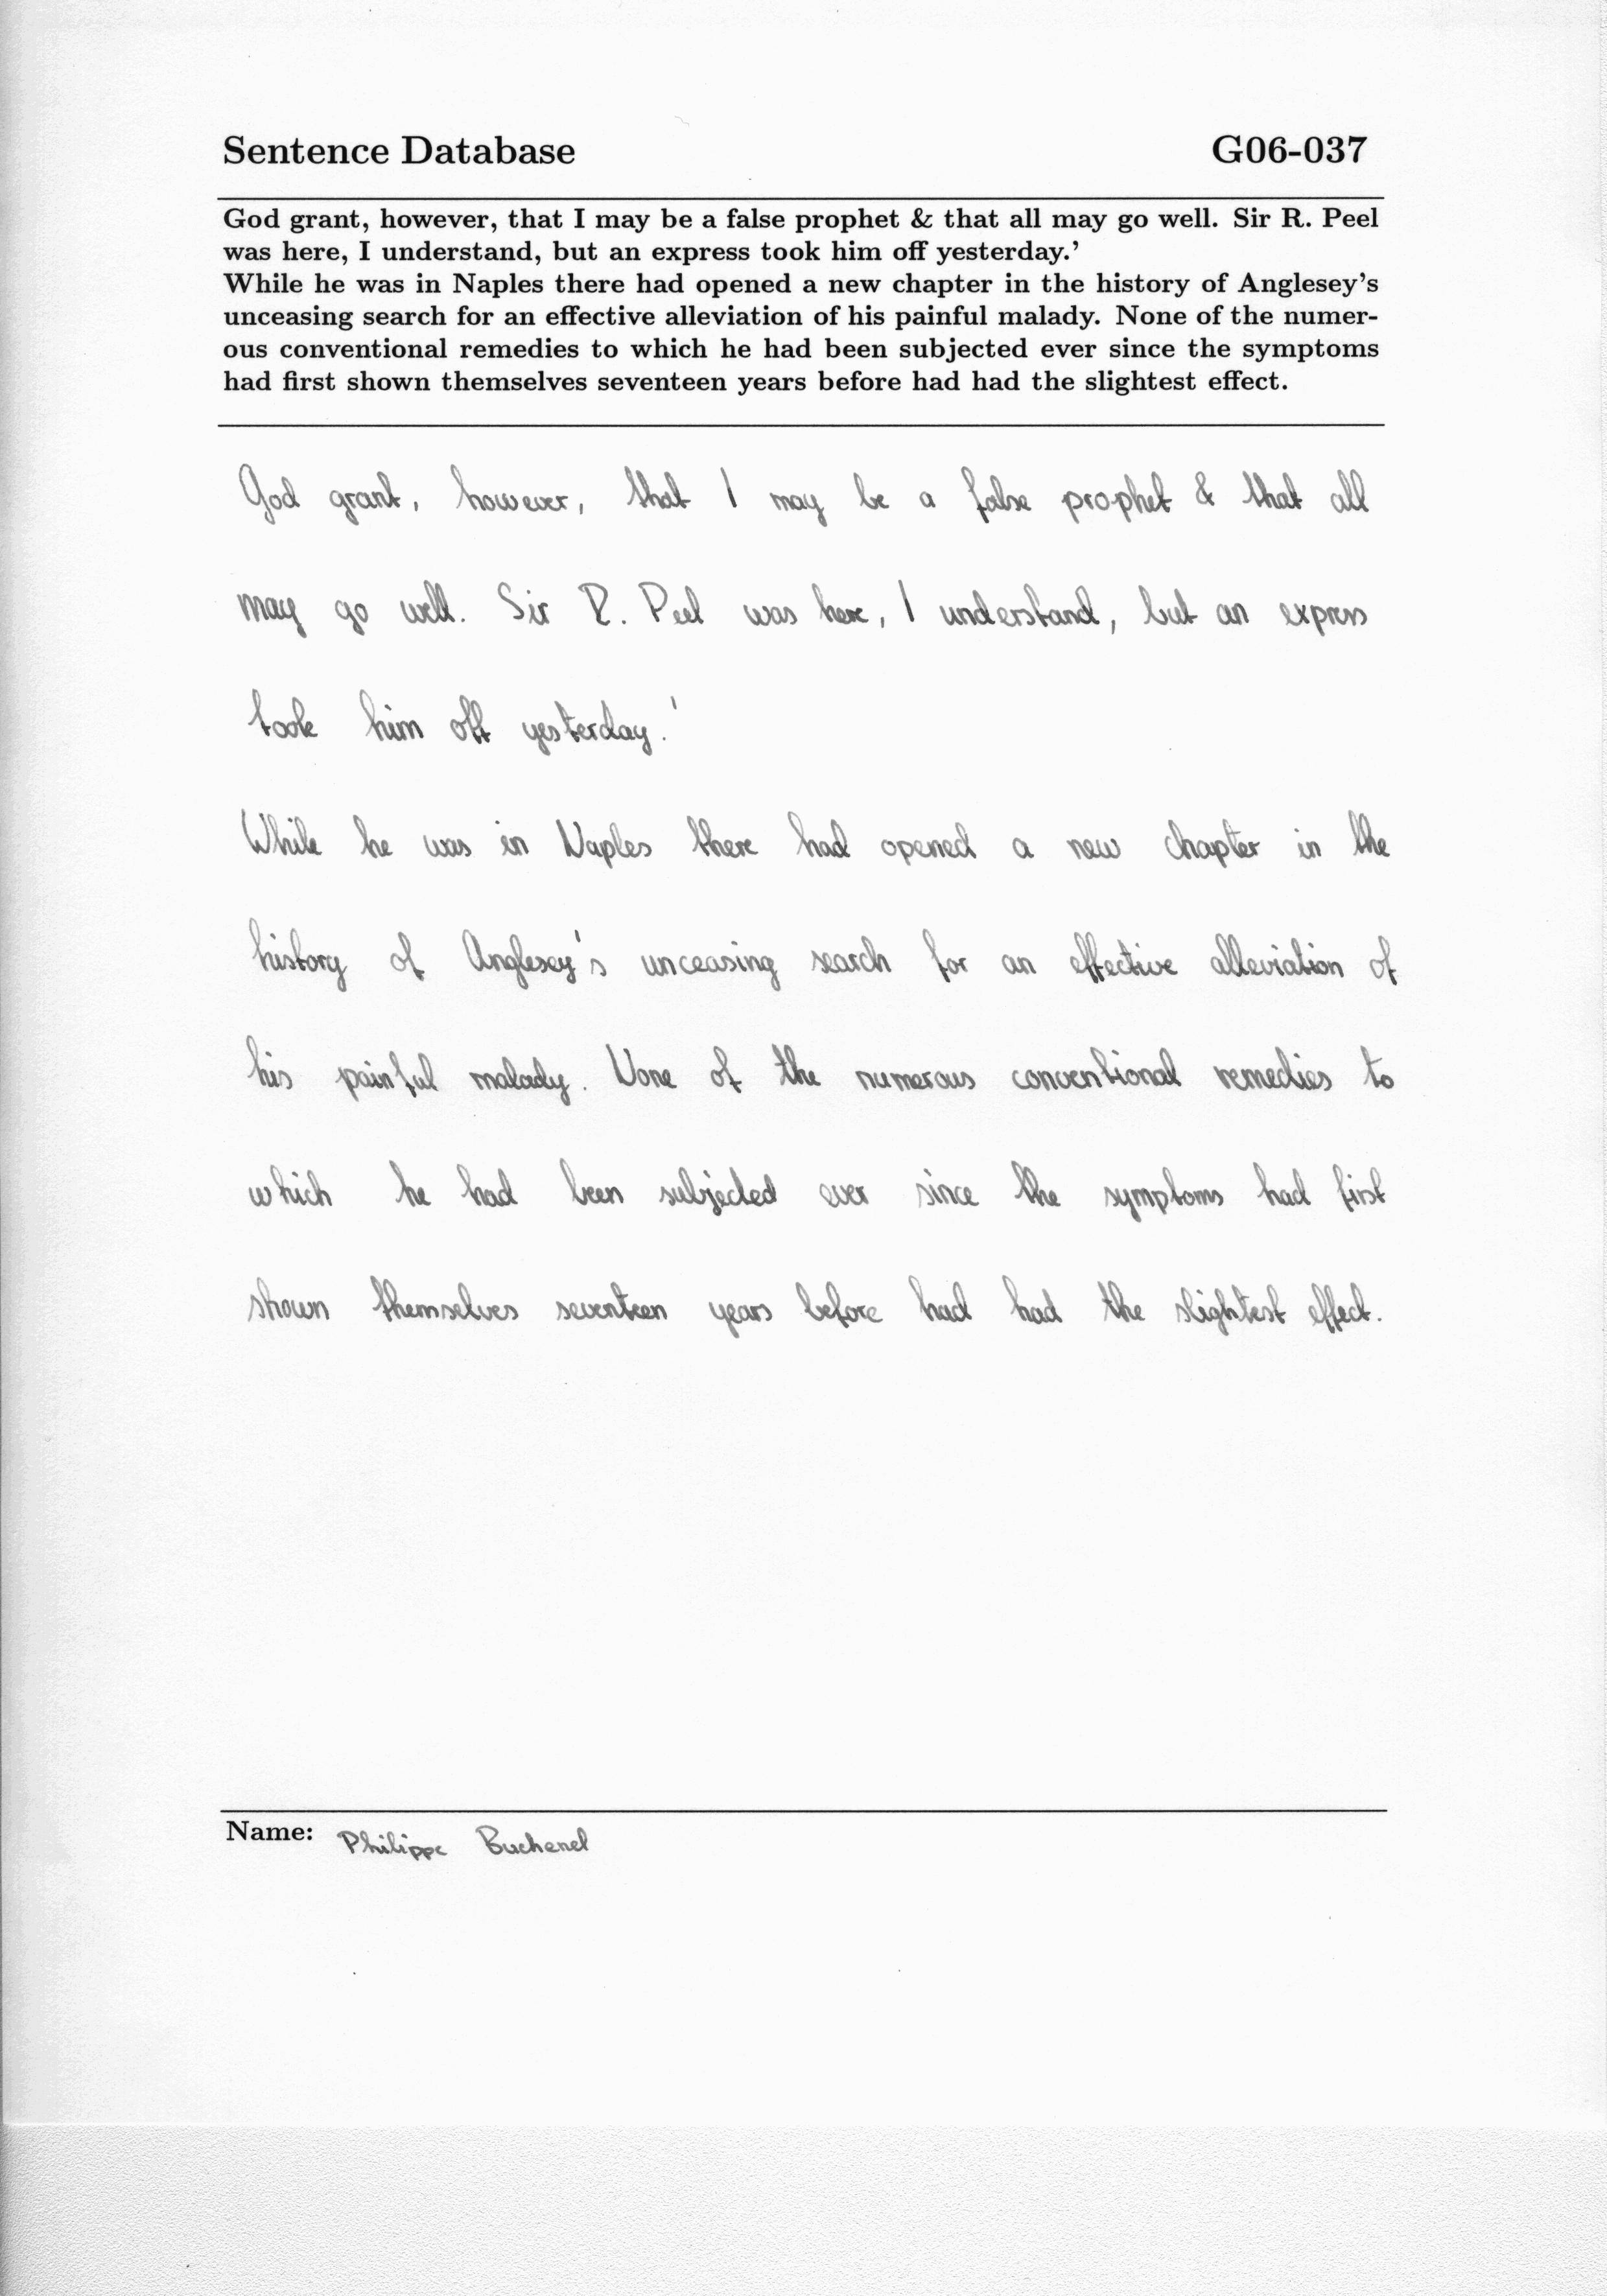 Sentence Database G06-037
God grant, however, that I may be a false prophet & that all may go well. Sir R. Peel
was here, I understand, but an express took him off yesterday.’
While he was in Naples there had opened a new chapter in the history of Anglesey’s
unceasing search for an effective alleviation of his painful malady. None of the numer-
ous conventional remedies to which he had been subjected ever since the symptoms
had first shown themselves seventeen years before had had the slightest effect.
God grant, however, that I may be a false prophet & that all
may go well. Sir R. Peel was here, I understand, but an express
took him off yesterday.'
While he was in Naples there had opened a new chapter in the
history of Anglesey's unceasing search for an effective alleviation of
his painful malady. None of the numerous conventional remedies to
which he had been subjected ever since the symptoms had first
shown themselves seventeen years before had had the slightest effect.
Name: Philippe Buchenel